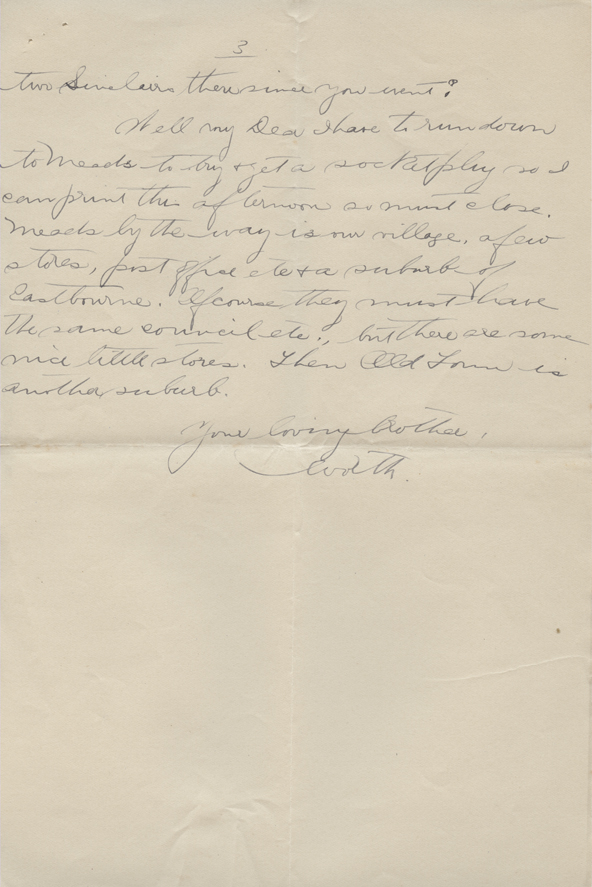 3
two Sinclairs there since you went?
Well my Dea I have to run down
to Meads to try & get a socket plug so I
can print this afternoon so must close.
Meads by the way is our village, a few
stores, post office etc & a suburb of
Eastbourne. Of course they must have
the same council etc., but there are some
nice little stores. Then Old Town is
another suburb.
Your loving brother,